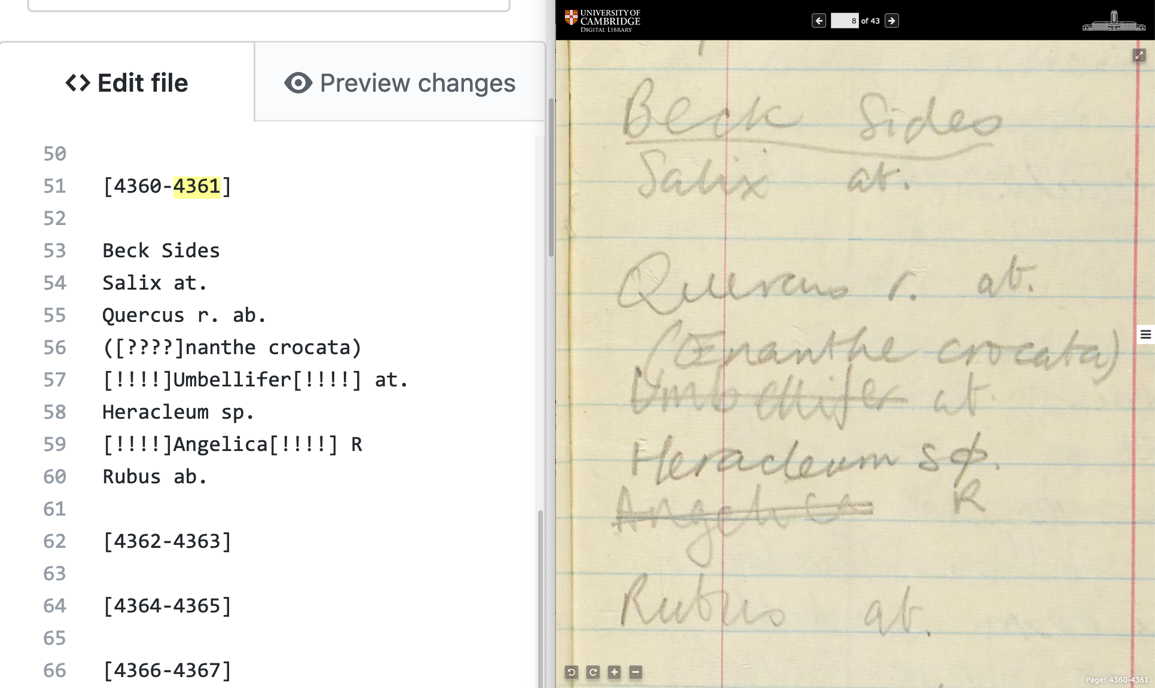 Edit file
Preview changes
50
51 [4360-4361]
52
53 Beck Sides
54 Salix at.
55 Quercus r. ab.
56 ([????]nanthe crocata)
57 [!!!!]Umbellifer[!!!!] at.
58 Heracleum sp.
59 [!!!!]Angelica[!!!!] R
60 Rubus ab.
61
62 [4362-4363]
63
64 [4364-4365]
65
66 [4366-4367]
UNIVERSITY OF
CAMBRIDGE
DIGITAL LIBRARY
8 of 43
Beck Sides
Salix at.
Quercus r. ab.
(Œnanthe crocata)
Umbellifer at.
Heracleum sp.
Angelica R
Rubus ab.
Page: 4360-4361